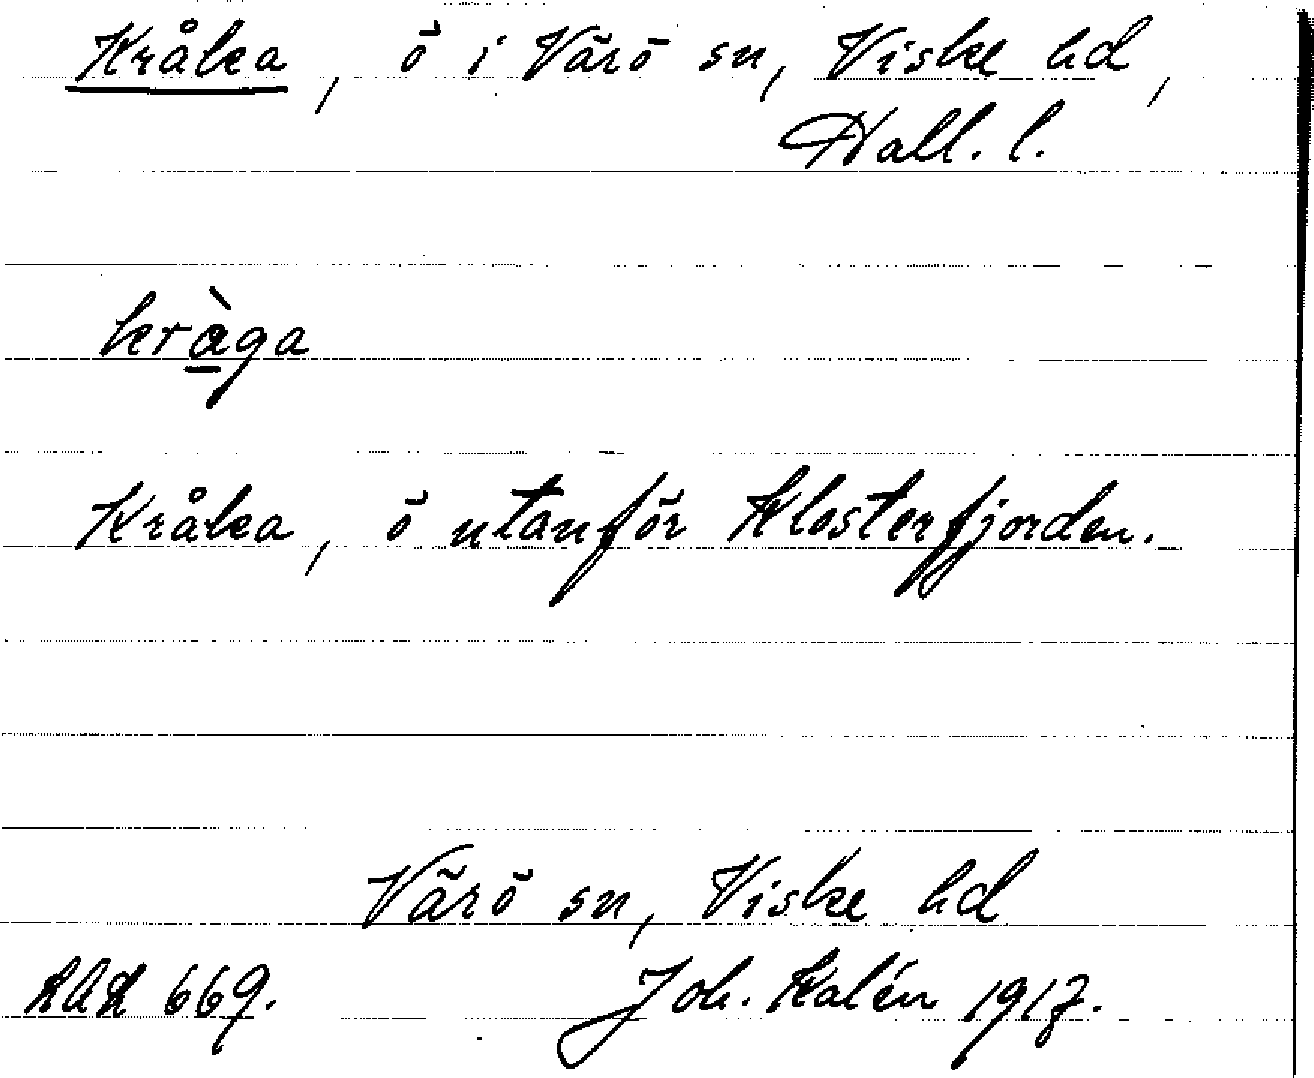 Kråka, ö i Värö sn, Viske hd,
Hall. l.
kràga
Kråka, ö utanför Klosterfjorden.
Värö sn, Viske hd
669. Joh. Kalén 1917.